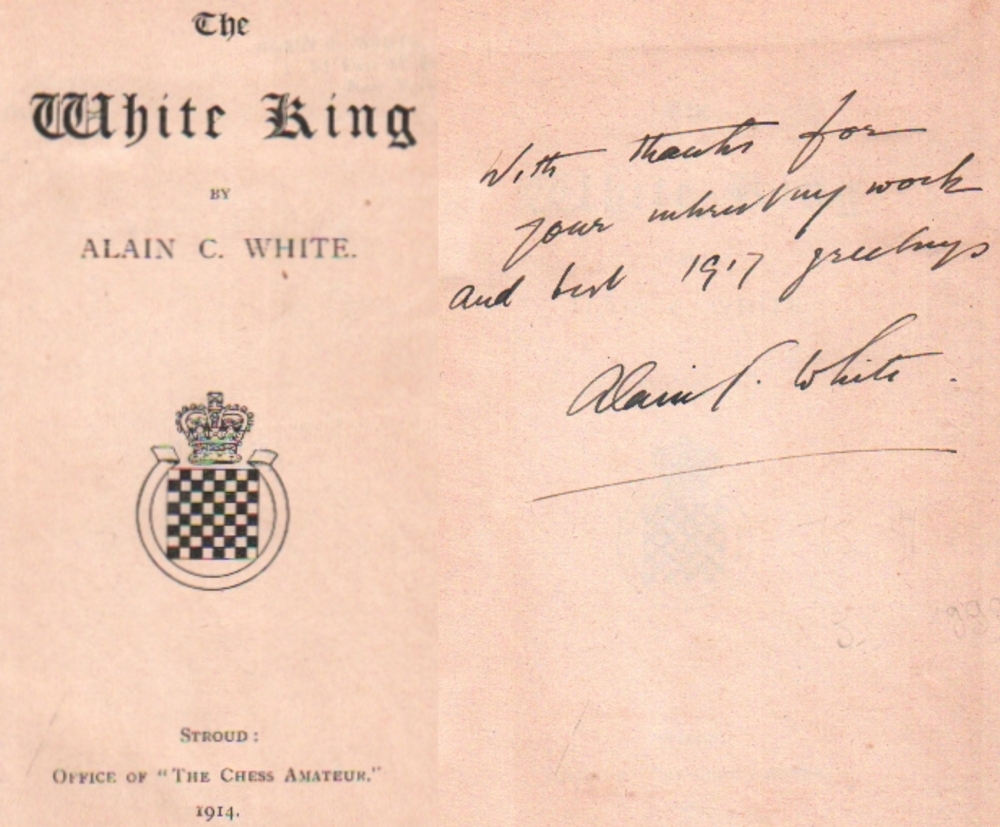 The
White King
BY
ALAIN C. WHITE.
STROUD:
OFFICE OF "THE CHESS AMATEUR."
1914.
With thanks for
your interesting work
and best 1917 greetings
Alain C. White.